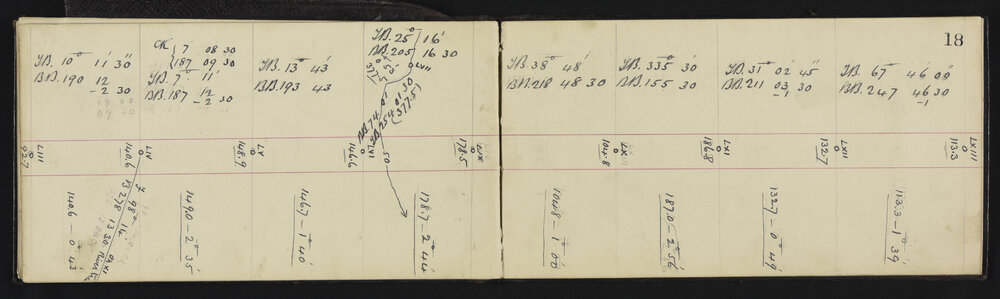 18
F.B. 10° 11' 30"
B.B. 190 12 -2 30
CK { 7 08 30
187 09 30
F.B. 7° 11'
B.B. 187 12 -2 30
F.B. 13° 43'
B.B. 193 43
F.B. 25° 16'
B.B. 205 16 30
LVII
B.B. 74
F.B. 254 01 30
(377.5)
F.B. 38° 48'
B.B. 218 48 30
F.B. 335° 30'
B.B. 155 30
F.B. 31° 02' 45"
B.B. 211 03 -1 30
F.B. 67° 46' 00"
B.B. 247 46 -1 30
LIII
92.7
LIV
140.6
LV
148.9
LVI
146.6
LIX
178.5
LX
104.8
LXI
186.8
LXII
132.7
LXIII
113.3
140.6 – 0° 43'
98° 14'
B 278 13 30
149.0 – 2° 35'
146.7 – 1° 40'
178.7 – 2° 44'
104.8 – 1° 00'
187.0 – 2° 56'
132.7 – 0° 49'
113.3 – 1° 39'